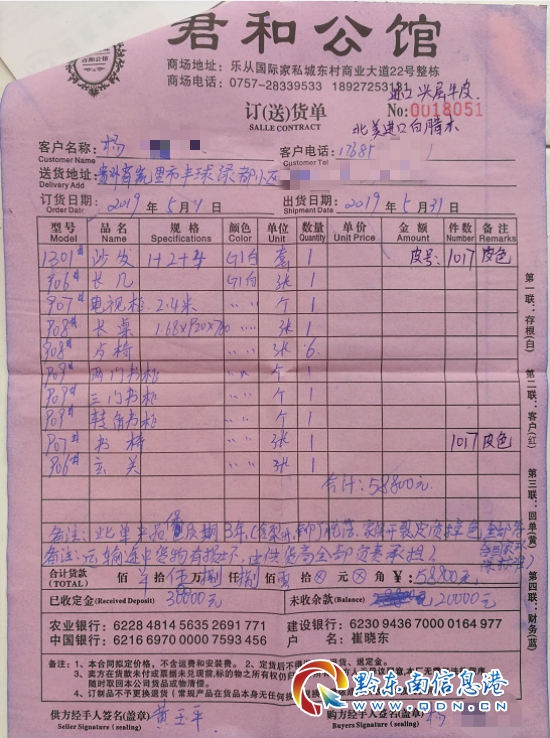 君和公馆
君和公馆
商场地址：乐从国际家私城东村商业大道22号整栋
商场电话：0757-28339533 18927253181
进口头层牛皮
订(送)货单 No:0018051
SALLE CONTRACT
北美进口白腊木
客户名称: 杨 客户电话: 13685 1
Customer Name Customer Tel
送货地址: 贵州省凯里市丰球绿都小区
Delivery Add
订货日期: 2019年5月 日 出货日期: 2019年5月31日
Order Date: Shipment Date:
型号 品名 规格 颜色 单位 数量 单价 金额 件数 备注
Model Name Specifications Color Unit Quantity Unit Price Amount Number Remarks
1301# 沙发 1+2+4 G1白 套 1 皮号: 1017 皮色
906# 长几 G1白 张 1
907# 电视柜 2.4米 〃 〃 个 1
908# 长桌 〃 〃 张 1
908# 占椅 〃 〃 张 6
909# 两门书柜 〃 〃 个 1
909# 三门书柜 〃 〃 个 1
909# 转角书柜 〃 〃 个 1
907# 书椅 〃 〃 张 1 1017 皮色
906# 玄关 〃 〃 张 1
合计: 58800元
备注: 此单产品保质期3年
备注: 运输途中货物有损坏, 由供货商全部负责承担)
合计货款 佰 拾 万 仟 佰 拾 元 角 ¥: 58800元
(TOTAL)
已收定金(Received Deposit) 30000元 未收余款(Balance) 20000元
农业银行：6228 4814 5635 2691 771 建设银行：6230 9436 7000 0164 977
中国银行：6216 6970 0000 7593 456 户 名：崔晓东
备注：1、本合同拟定价格，不含运费和安装费。 2、定货后不
3、卖方在货款未付或票据未兑现前,标的物之所有权仍归
随时取回本公司货品或物清偿。
4、订制品不予更换退货（常规产品在货品本身无任何
供方经手人签名(盖章) 黄玉平 购方经手人签名(盖章) 杨
Seller Signature (sealing) Buyer Signature (sealing)
第一联：存根(白)
第二联：客户(红)
第三联：回单(黄)
第四联：财务(蓝)
黔东南信息港
WWW.QDN.CN